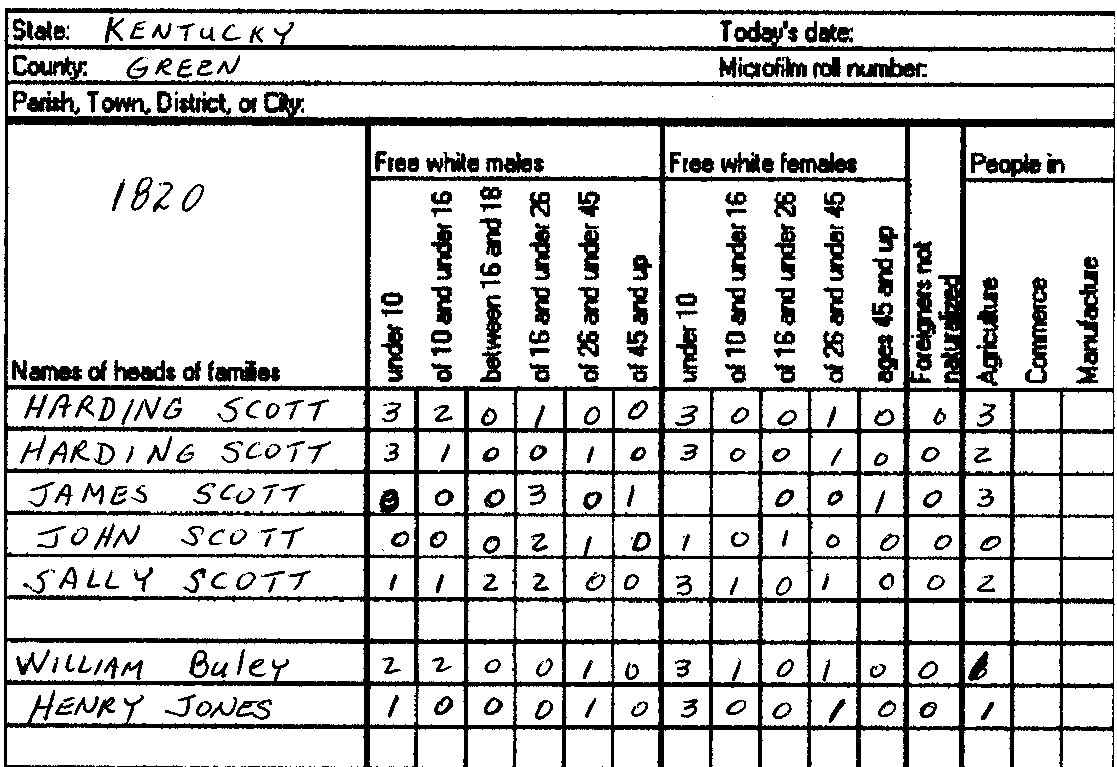 State: KENTUCKY Today's date:
County: GREEN Microfilm roll number:
Parish, Town, District, or City:
1820 Free white males Free white females People in
Names of heads of families under 10 of 10 and under 16 between 16 and 18 of 16 and under 26 of 26 and under 45 of 45 and up under 10 of 10 and under 16 of 16 and under 26 of 26 and under 45 ages 45 and up Foreigners not naturalized Agriculture Commerce Manufacture
HARDING SCOTT 3 2 0 1 0 0 3 0 0 1 0 0 3
HARDING SCOTT 3 1 0 0 1 0 3 0 0 1 0 0 2
JAMES SCOTT 0 0 0 3 0 1 0 0 1 0 3
JOHN SCOTT 0 0 0 2 1 0 1 0 1 0 0 0 0
SALLY SCOTT 1 1 2 2 0 0 3 1 0 1 0 0 2
WILLIAM Buley 2 2 0 0 1 0 3 1 0 1 0 0
HENRY JONES 1 0 0 0 1 0 3 0 0 1 0 0 1